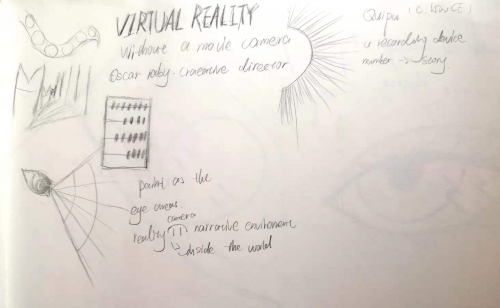 VIRTUAL REALITY
Without a movie camera
Oscar raby. director
Quipu
a recording device
number → story
point as the
eye areas
camera
reality narrative
inside the world